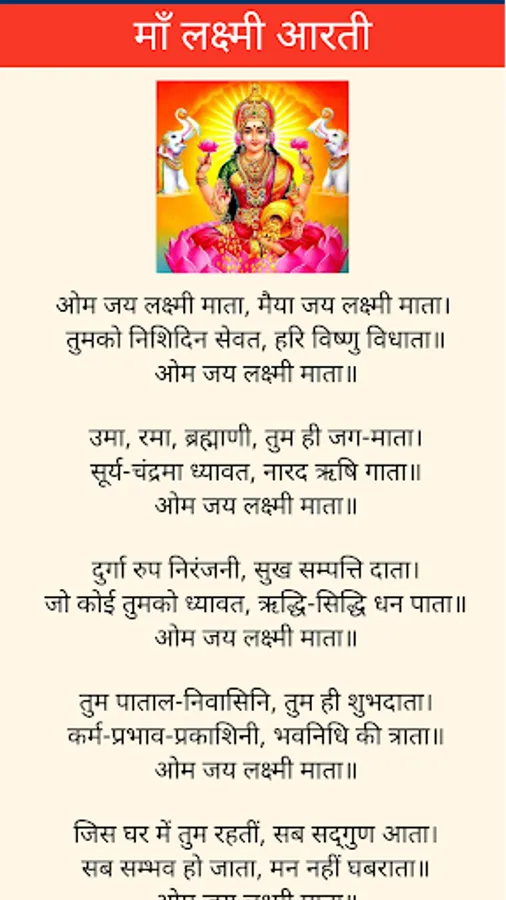 माँ लक्ष्मी आरती
ओम जय लक्ष्मी माता, मैया जय लक्ष्मी माता।
तुमको निशिदिन सेवत, हरि विष्णु विधाता॥
ओम जय लक्ष्मी माता॥
उमा, रमा, ब्रह्माणी, तुम ही जग-माता।
सूर्य-चंद्रमा ध्यावत, नारद ऋषि गाता॥
ओम जय लक्ष्मी माता॥
दुर्गा रुप निरंजनी, सुख सम्पत्ति दाता।
जो कोई तुमको ध्यावत, ऋद्धि-सिद्धि धन पाता॥
ओम जय लक्ष्मी माता॥
तुम पाताल-निवासिनि, तुम ही शुभदाता।
कर्म-प्रभाव-प्रकाशिनी, भवनिधि की त्राता॥
ओम जय लक्ष्मी माता॥
जिस घर में तुम रहतीं, सब सद्‍गुण आता।
सब सम्भव हो जाता, मन नहीं घबराता॥
ओम जय लक्ष्मी माता॥